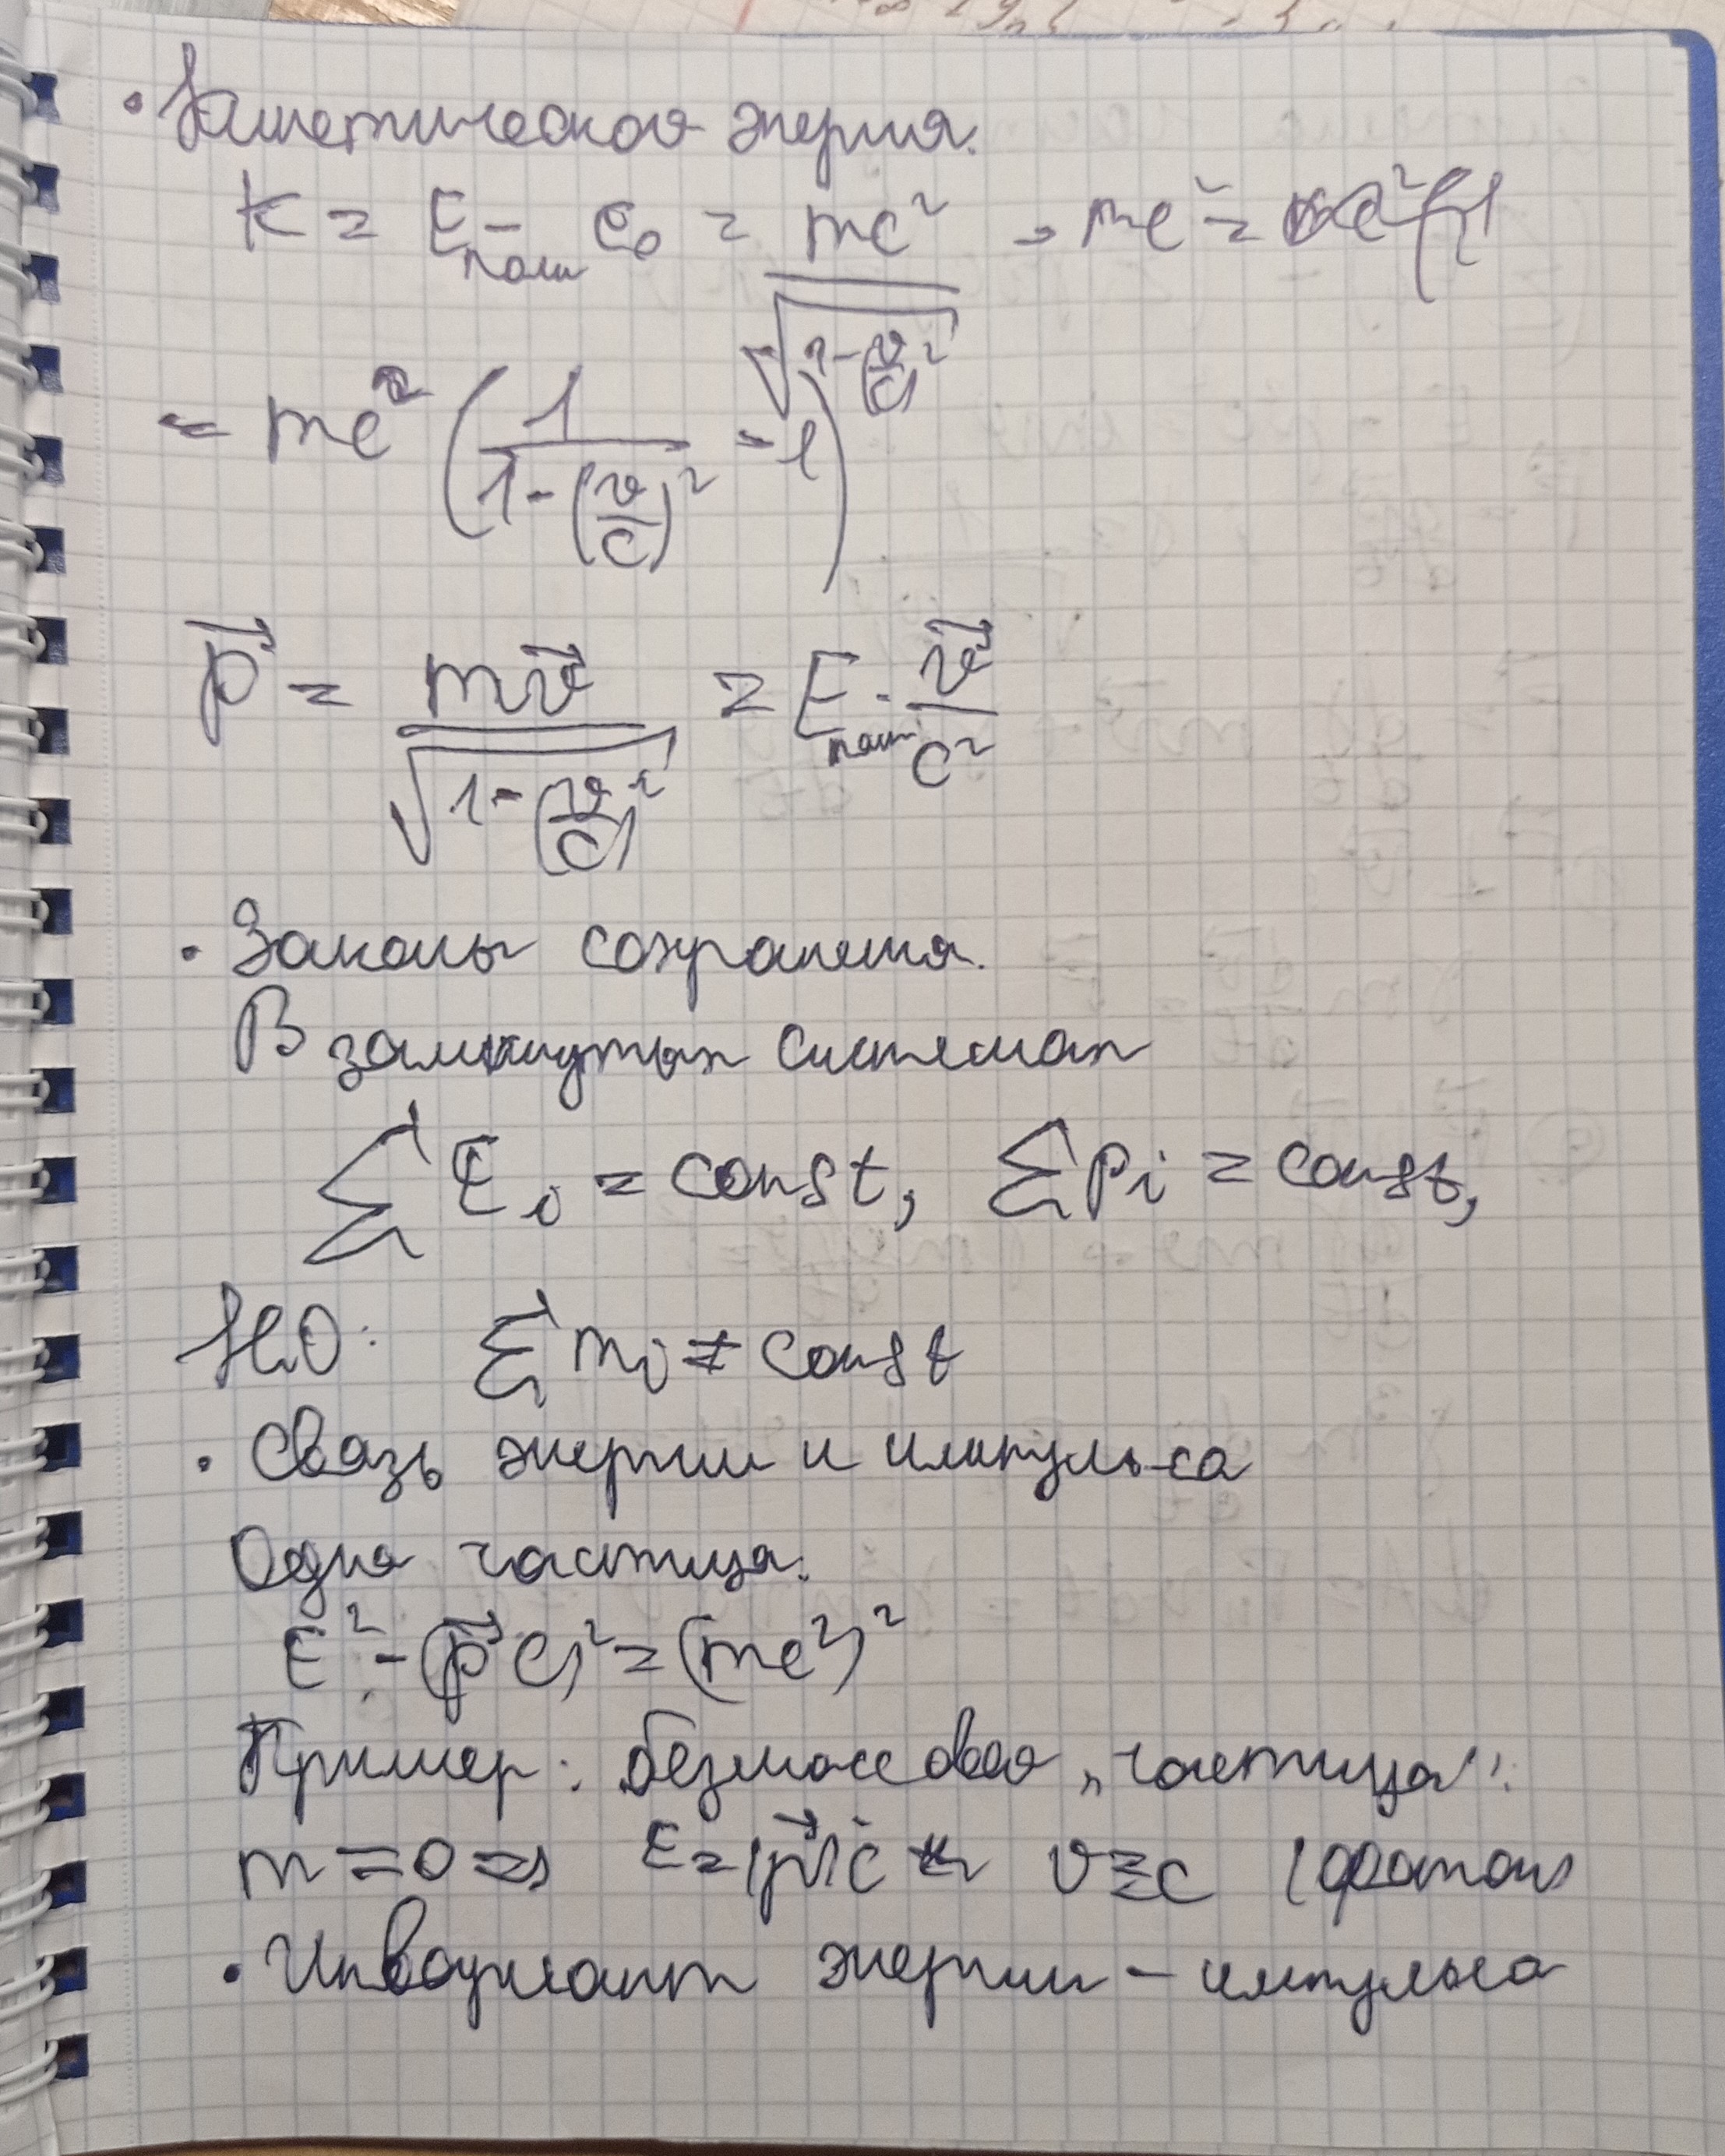 • Кинетическая энергия.
K = E полн − E₀ = mc² / √(1−(v/c)²) − mc² =
= mc² (1 / 1−(v/c)² − 1)
p⃗ = mv⃗ / √(1−(v/c)²) = E полн · v⃗ / c²
• Законы сохранения.
В замкнутых системах
∑ E i = const, ∑ p i = const,
НО: ∑ m i ≠ const
• Связь энергии и импульса
Одна частица.
E² − (p⃗ c)² = (mc²)²
Пример: безмассовая „частица":
m = 0 => E = |p⃗|c и v ≡ c (фотон)
• Инвариант энергии – импульса